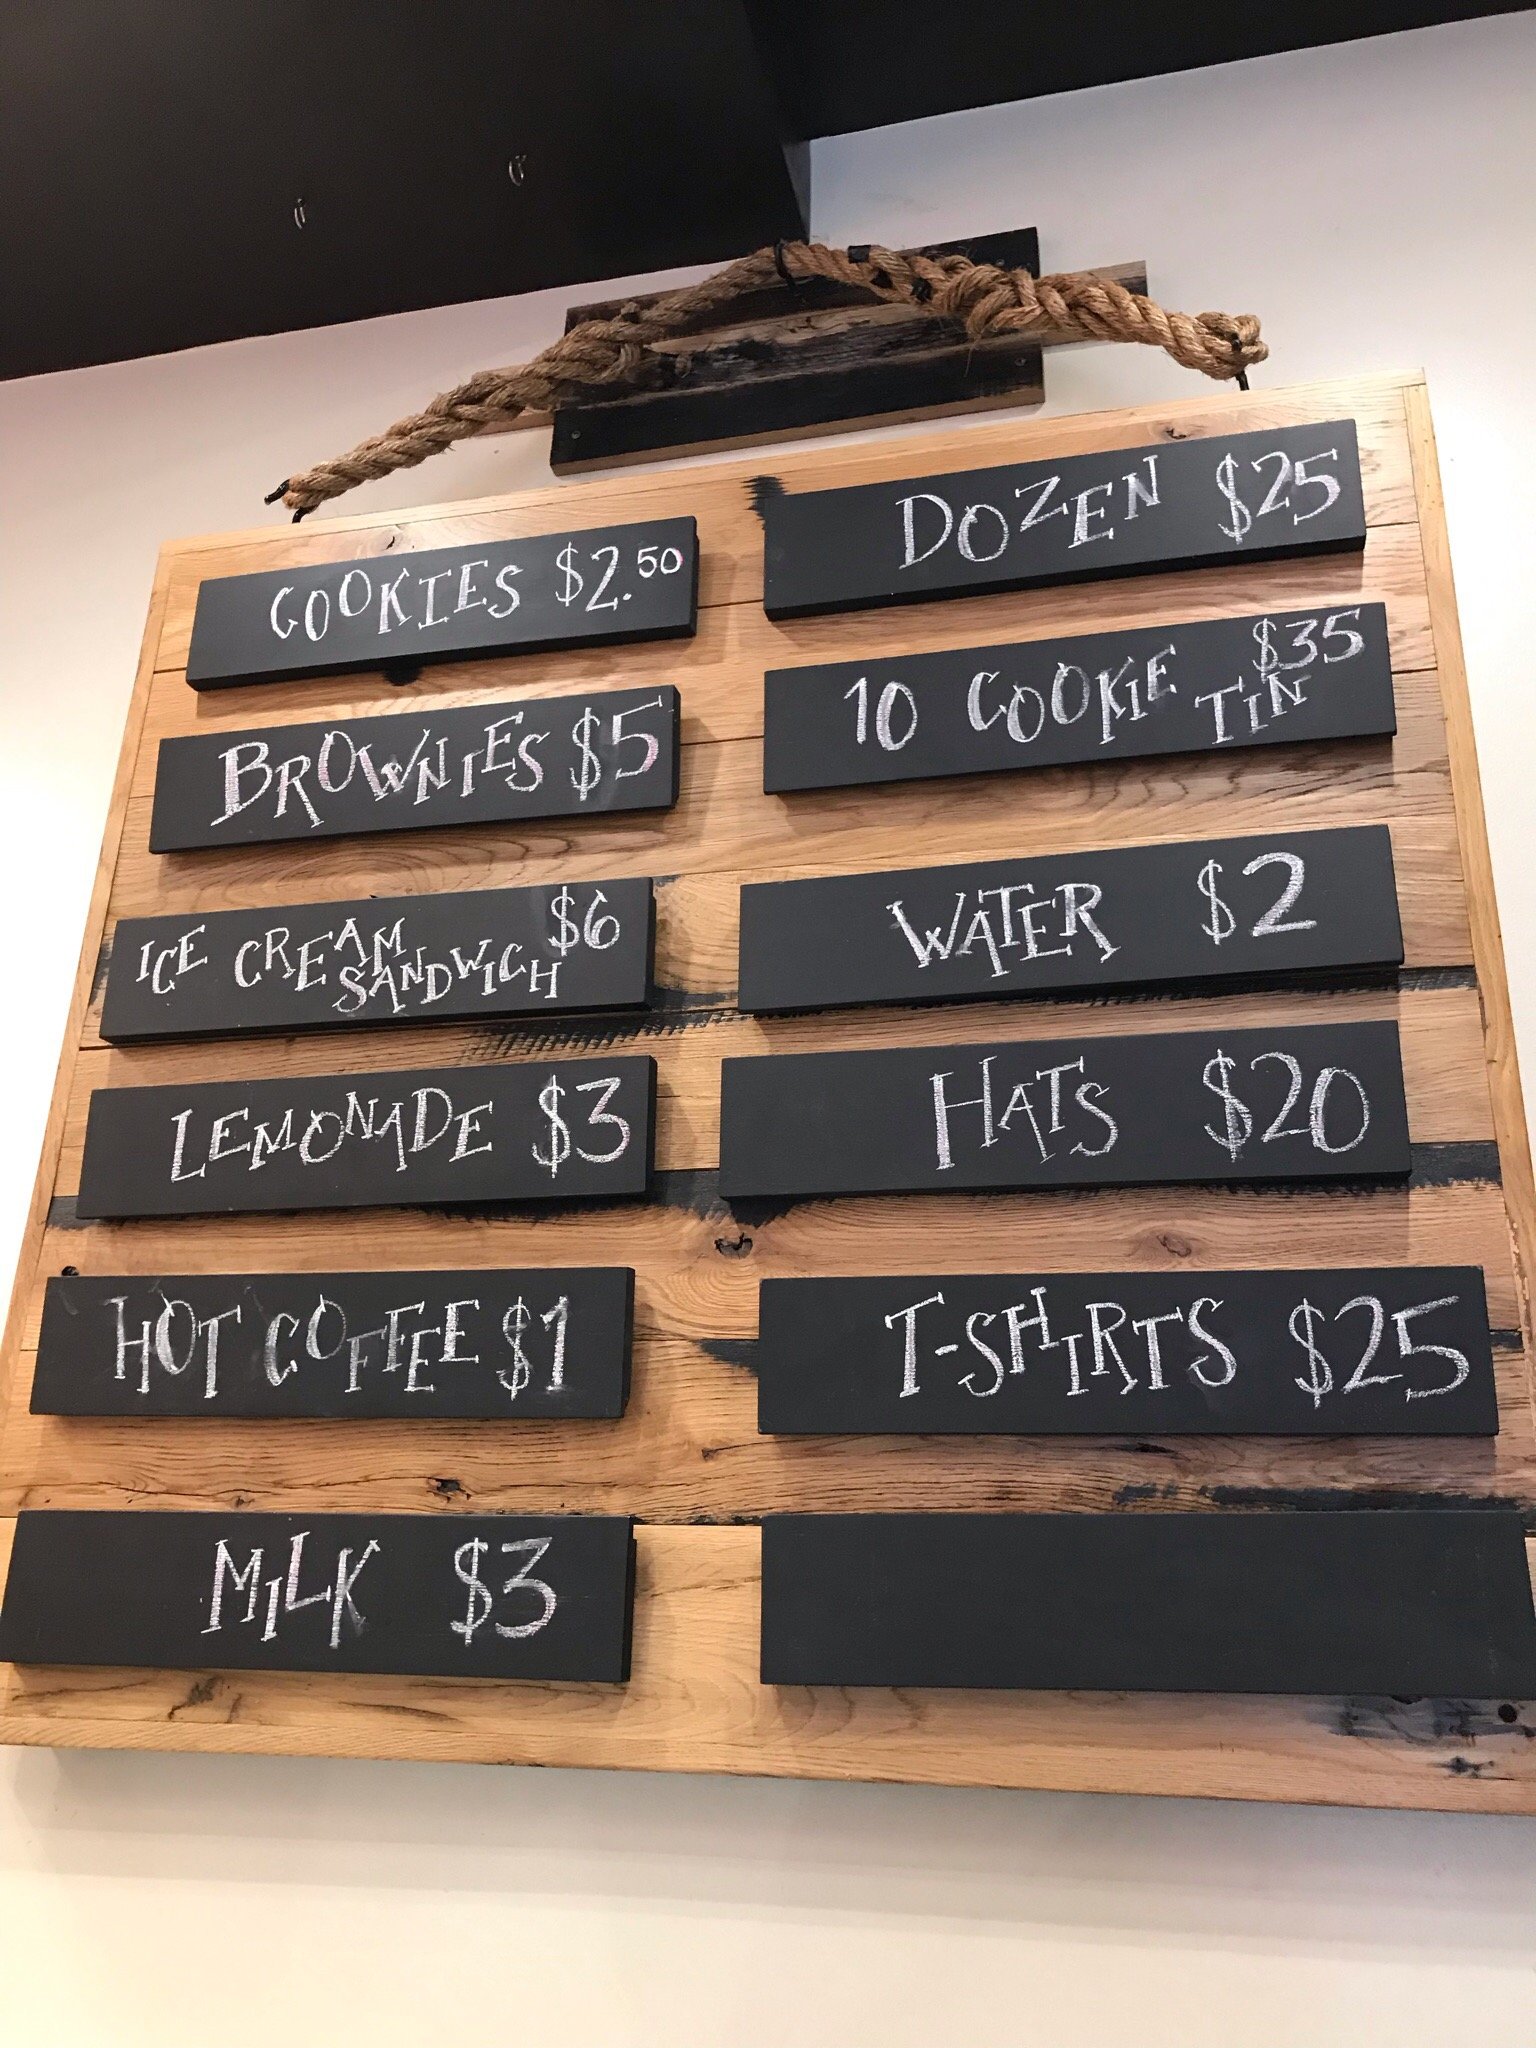 COOKIES $2.50
BROWNIES $5
ICE CREAM SANDWICH $6
LEMONADE $3
HOT COFFEE $1
MILK $3
DOZEN $25
10 COOKIE TIN $35
WATER $2
HATS $20
T-SHIRTS $25